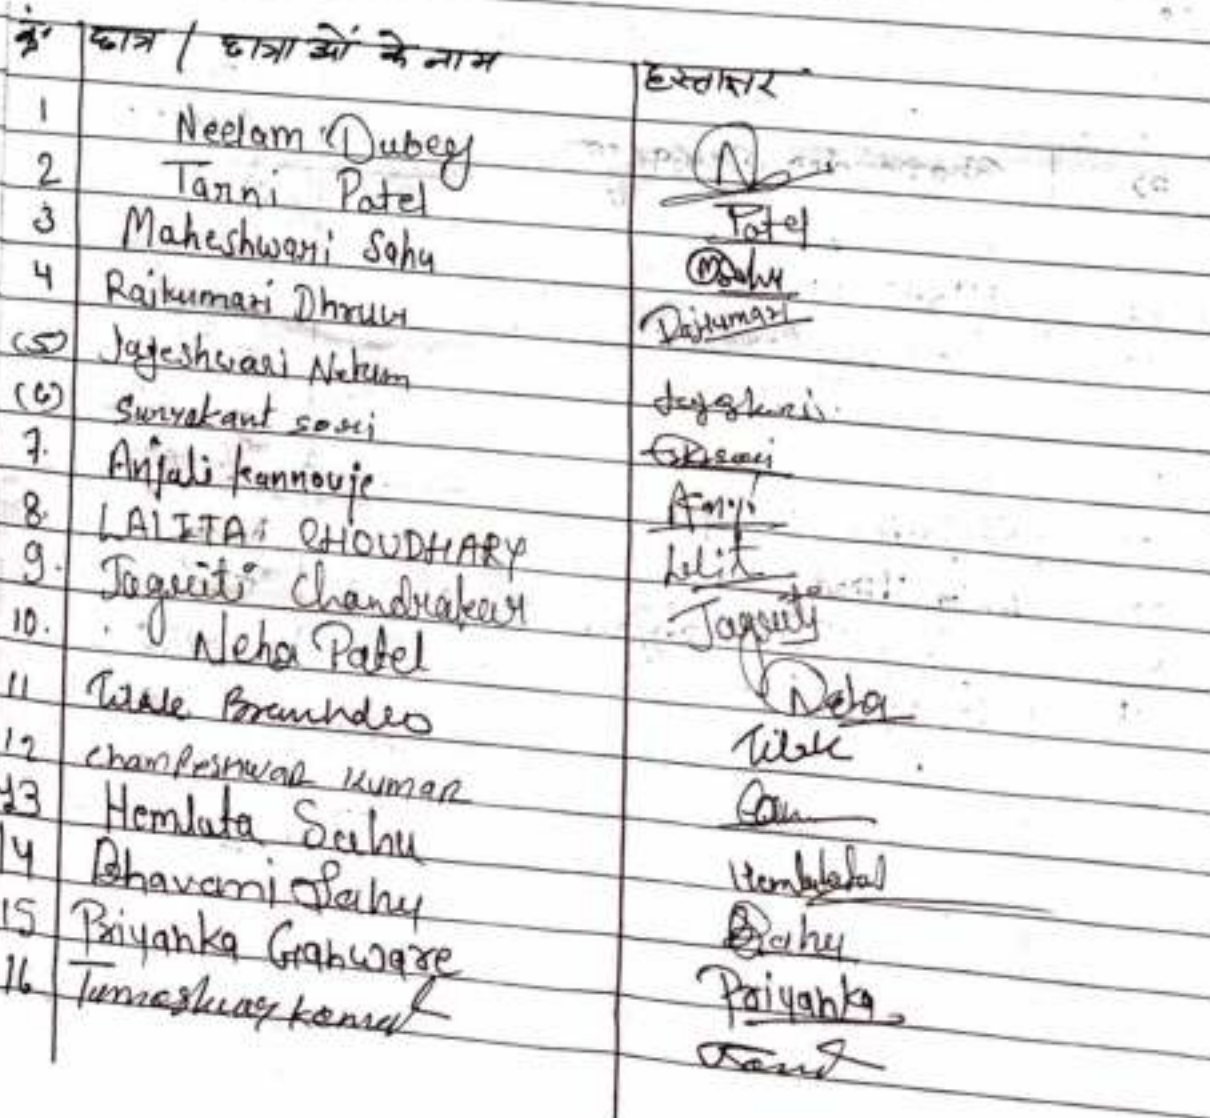 क्रं. छात्र / छात्राओं के नाम हस्ताक्षर
1 Neelam Dubey N
2 Tarni Patel Patel
3 Maheshwari Sahu MSahu
4 Rajkumari Dhruw Rajkumari
(5) Jageshwari Netam
(6) Suryakant sori
7. Anjali Kannouje
8. LALITA CHOUDHARY Lalit
9. Jagriti Chandrakar Jagriti
10. Neha Patel Neha
11 Tilak Bramhdeo Tilak
12 Champeshwar Kumar
13 Hemlata Sahu Hemlata
14 Bhavani Sahu BSahu
15 Priyanka Ganware Priyanka
16